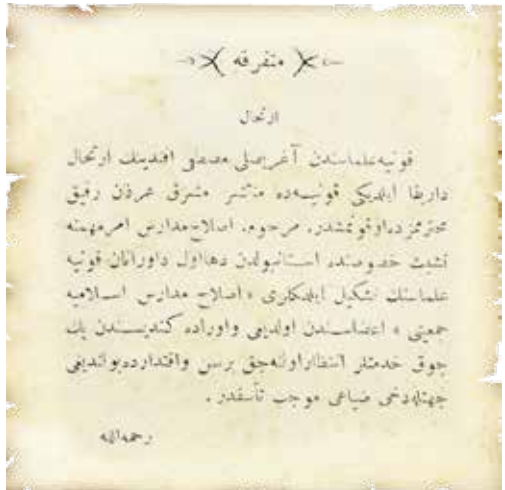 متفرقه
ارتحال
قونیه علماسندن آغریصلی مصطفی افندینك ارتحال
داربقا ایلدیکی قونیه‌ده منتشر مشرق عرفان رفیق
محترممزده اوقونمشدر. مرحوم، اصلاح مدارس امر مهمنه
تشبث خصوصنده استانبولدن دها اول داورانان قونیه
علماسنك تشکیل ایلدکلری « اصلاح مدارس اسلامیه
جمعیتی » اعضاسندن اولدیغی واوراده کندیسندن پك
چوق خدمتلر انتظار اولنه‌جق برسن واقتدارده بولندیغی
جهتله دخی ضیاعی موجب تأسفدر .
رحمه‌الله